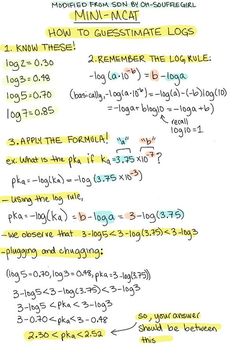 MODIFIED FROM SDN BY OH-SOUFFLEGIRL
MINI-MCAT
HOW TO GUESSTIMATE LOGS
1. KNOW THESE!
log2 = 0.30
log3 = 0.48
log5 = 0.70
log7 = 0.85
2. REMEMBER THE LOG RULE:
-log(a·10^-b) = b - loga
(basically, -log(a·10^-b) = -log(a)-(-b)log(10)
= -loga + blog10 = -loga + b)
recall
log10 = 1
3. APPLY THE FORMULA! "a" "b"
ex. What is the pKa if Ka = 3.75 × 10^-3?
pKa = -log(Ka) = -log(3.75 × 10^-3)
- Using the log rule,
pKa = -log(Ka) = b - loga = 3 - log(3.75)
- we observe that 3-log5 < 3-log(3.75) < 3-log3
- plugging and chugging:
(log5 = 0.70, log3 = 0.48, pKa = 3-log(3.75))
3-log5 < 3-log(3.75) < 3-log3
3-log5 < pKa < 3-log3
3-0.70 < pKa < 3-0.48
2.30 < pKa < 2.52
so, your answer
should be between
this